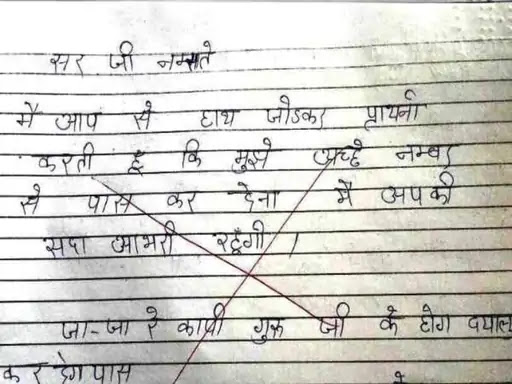 सर जी नमस्ते
मै आप से हाथ जोडकर प्राथर्ना
करती हूँ कि मुझे अच्छे नम्बर
से पास कर देना मै अपकी
सदा आभरी रहूँगी ।
जा-जा रे कापी गुरू जी के होग दयालु
कर देगे पास